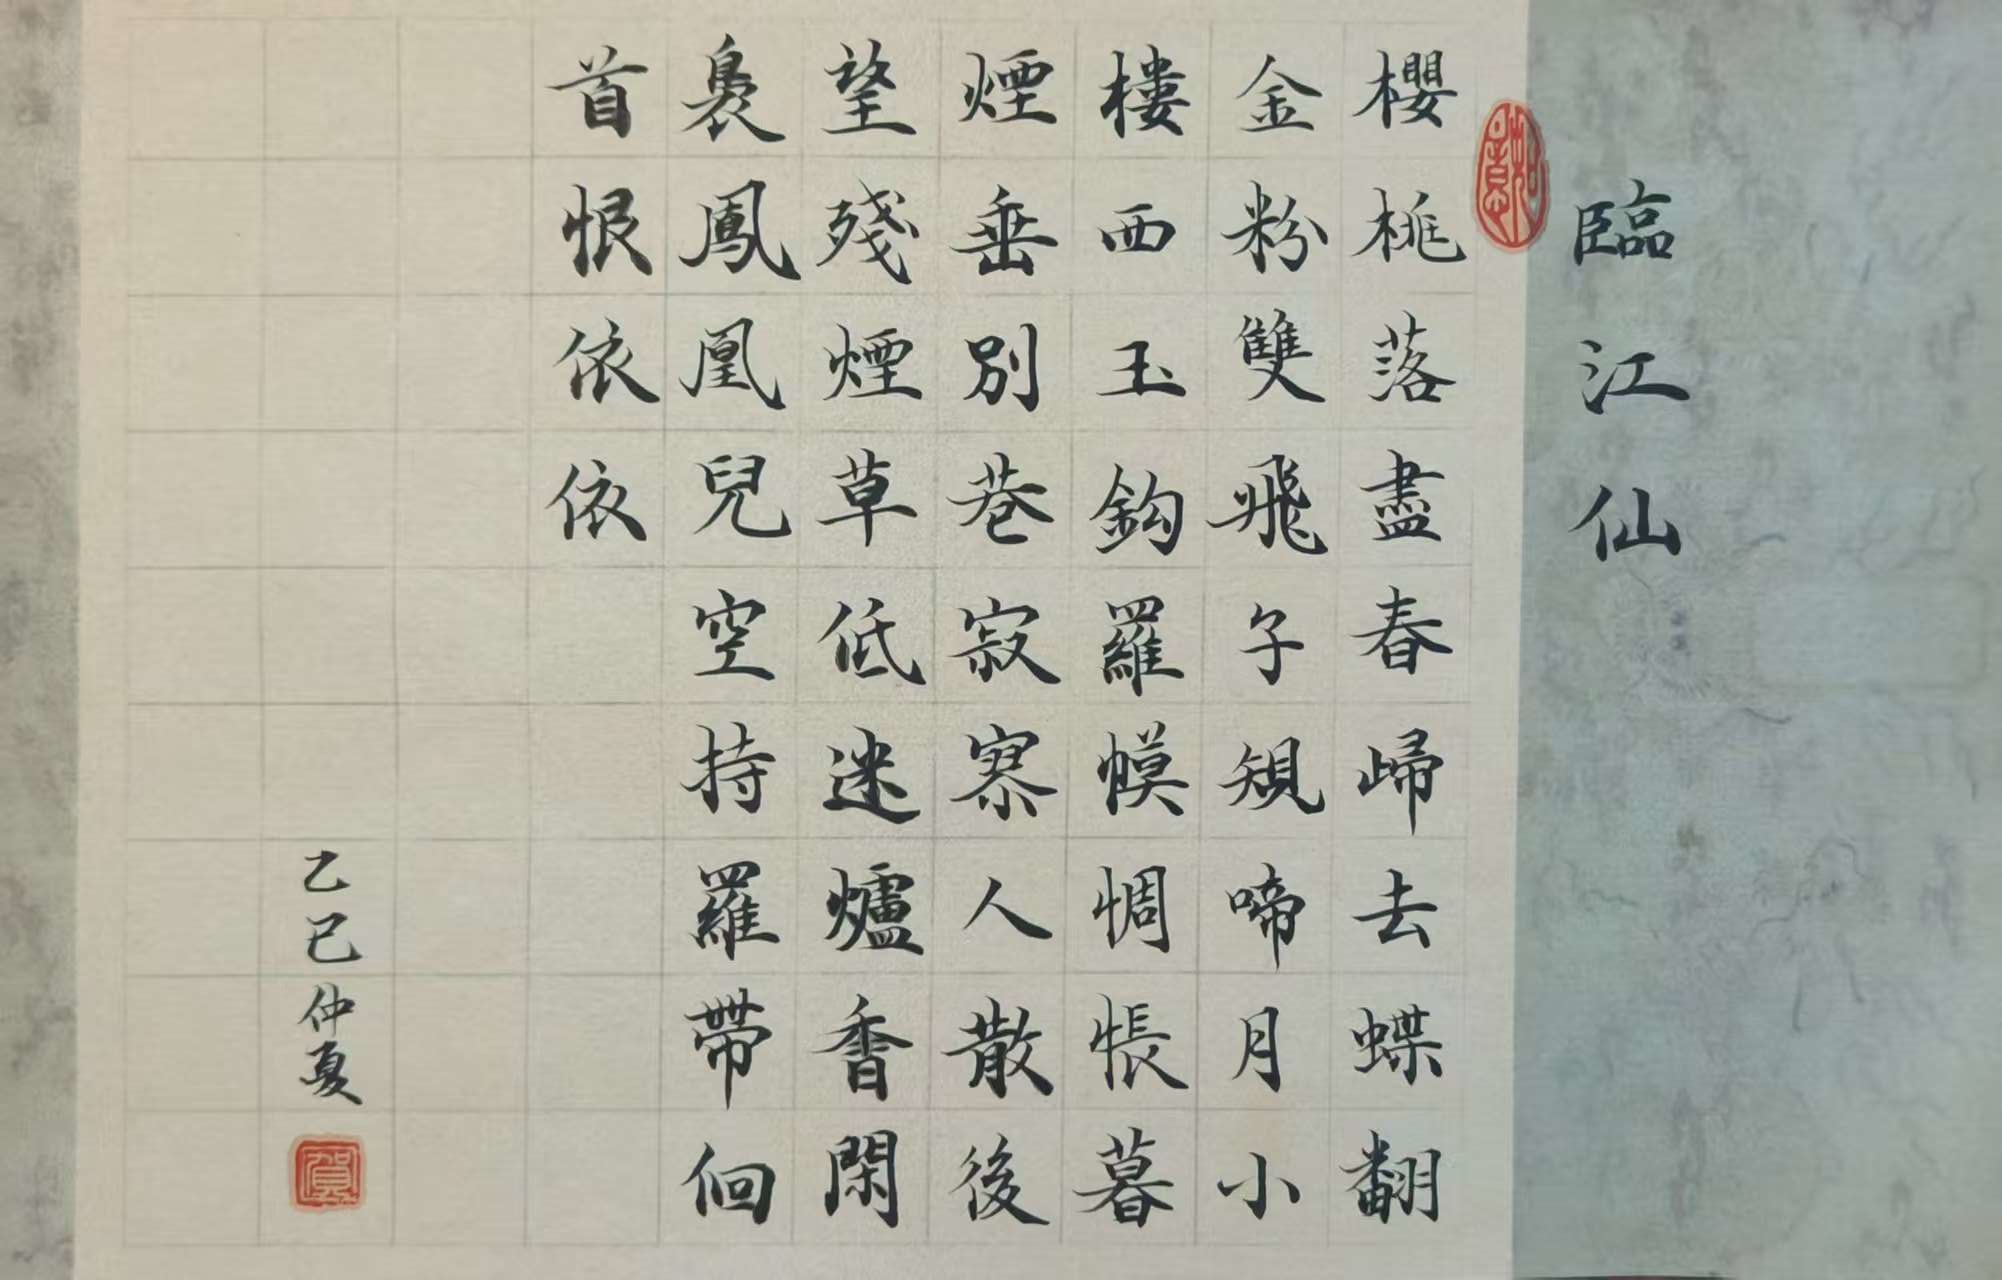 臨江仙
如意
櫻桃落盡春㱕去蝶翻
金粉雙飛子䂓啼月小
樓西玉鈎羅幙惆悵暮
煙垂別巷寂寥人散後
望殘煙草低迷爐香閑
裊鳳凰兒空持羅帶佪
首恨依依
乙巳仲夏
賀